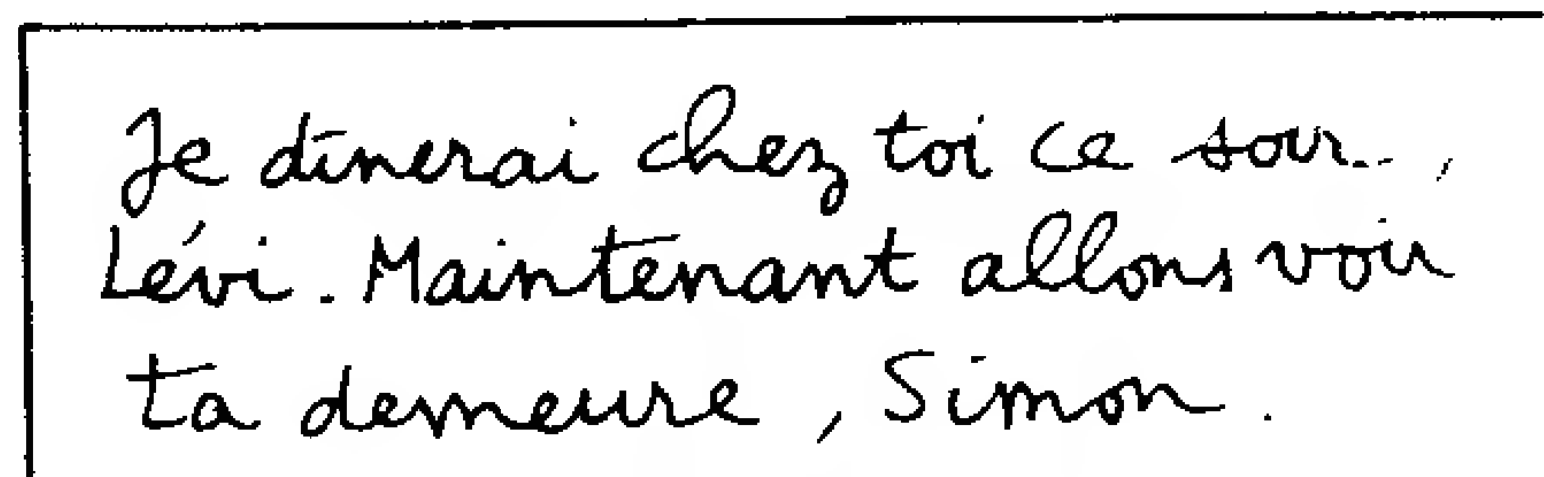 Je dînerai chez toi ce soir...,
Lévi. Maintenant allons voir
ta demeure, Simon.